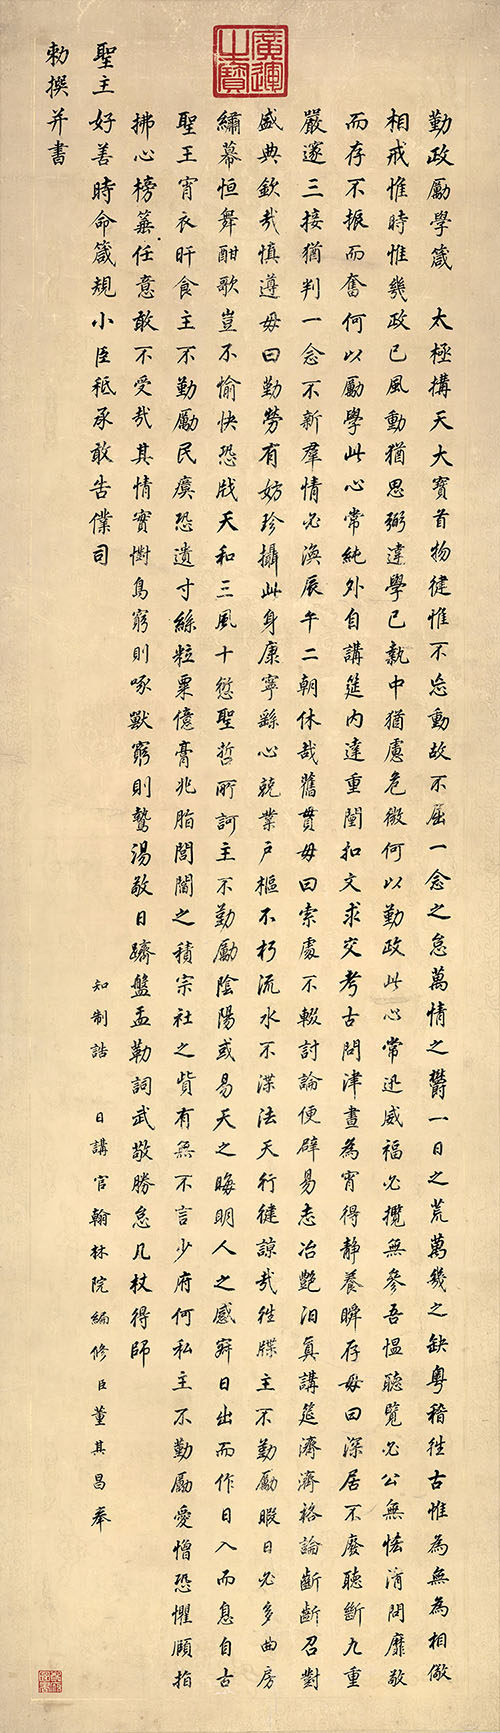 廣運之寶
勤政勵學箴　太極構天大寶首物健惟不忘動故不屈一念之怠萬情之鬱一日之荒萬幾之缺粵稽往古惟為無為相儆
相戒惟時惟幾政已風動猶思弼違學已執中猶慮危微何以勤政此心常迅威福必攬無參吾慍聽覽必公無恡清問靡敢
而存不振而奮何以勵學此心常純外自講筵内達重闈扣文求交考古問津晝為宵得靜養瞬存毋曰深居不廢聽斷九重
嚴邃三接猶判一念不新羣情必渙辰午二朝休哉舊貫毋曰索處不輟討論便辟易志冶艷汩真講筵濟濟格論齗齗召對
盛典欽哉慎遵毋曰勤勞有妨珍攝此身康寧繇心兢業戶樞不朽流水不渫法天行健諒哉徃牒主不勤勵暇日必多曲房
繡幕恒舞酣歌豈不愉快恐戕天和三風十愆聖哲所訶主不勤勵陰陽或易天之晦明人之感寤日出而作日入而息自古
聖王宵衣旰食主不勤勵民瘼恐遺寸絲粒粟億膏兆脂閭閻之積宗社之貲有無不言少府何私主不勤勵愛憎恐懼頤指
拂心榜箠任意敢不受哉其情實懟鳥窮則啄獸窮則騺湯敬日躋盤盂勒詞武敬勝怠几杖得師
聖主好善時命箴規小臣秪承敢告僕司
知制誥　日講官翰林院編修臣董其昌奉
勅撰并書